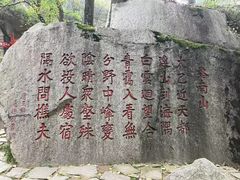 終南山
太乙近天都
連山到海隅
白雲迴望合
青靄入看無
分野中峰變
陰晴眾壑殊
欲投人處宿
隔水問樵夫